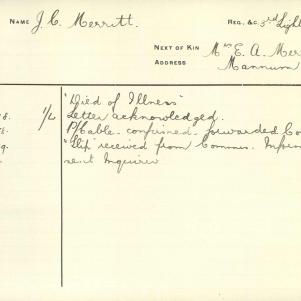 NAME J. C. Merritt. REG. &C. 3rd Light
NEXT OF KIN Mrs E. A. Mer
ADDRESS Mannum
"Died of Illness"
8. 1/L Letter acknowledged.
P/Cable confirmed forwarded Co
9. "Slip" received from Commun. Infor
sent Inquirer